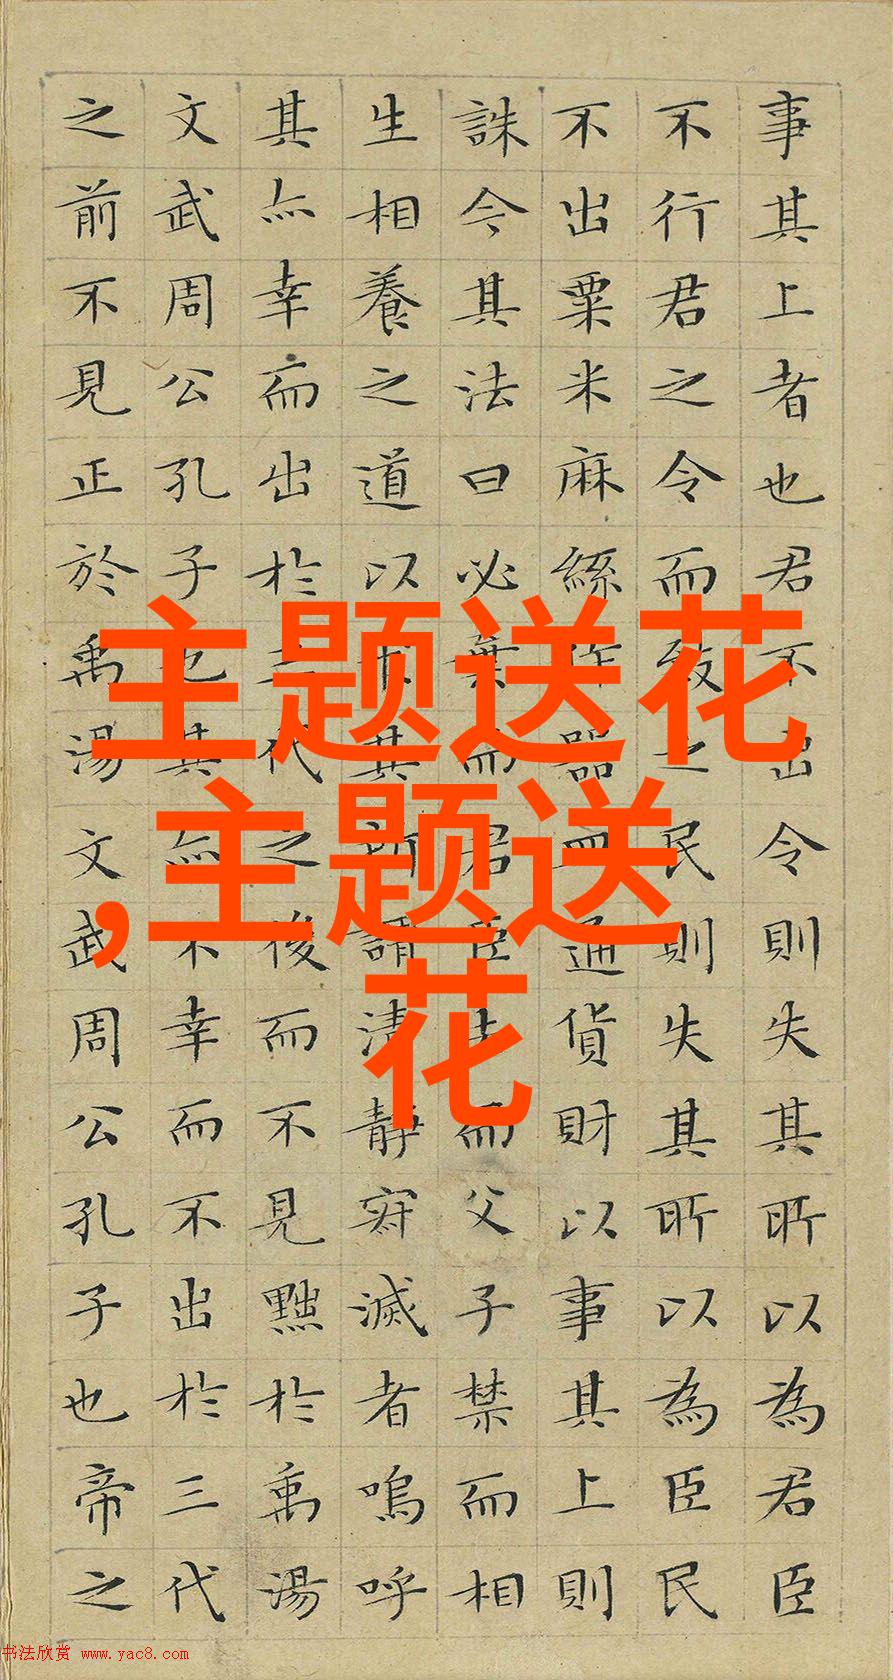 事其上者也君不出令則失其所以為君臣
不行君之令而致之民則失其所以為臣民
不出粟米麻絲作器皿通貨財以事其上則
誅今其法曰必棄而君臣去而父子禁而相
生相養之道以求其所謂清靜寂滅者嗚呼
其亦幸而出於三代之後而不見黜於禹湯
文武周公孔子也其亦不幸而不出於三代
之前不見正於禹湯文武周公孔子也帝之
主题送花
,主题送
花
书法欣赏 www.yac8.com